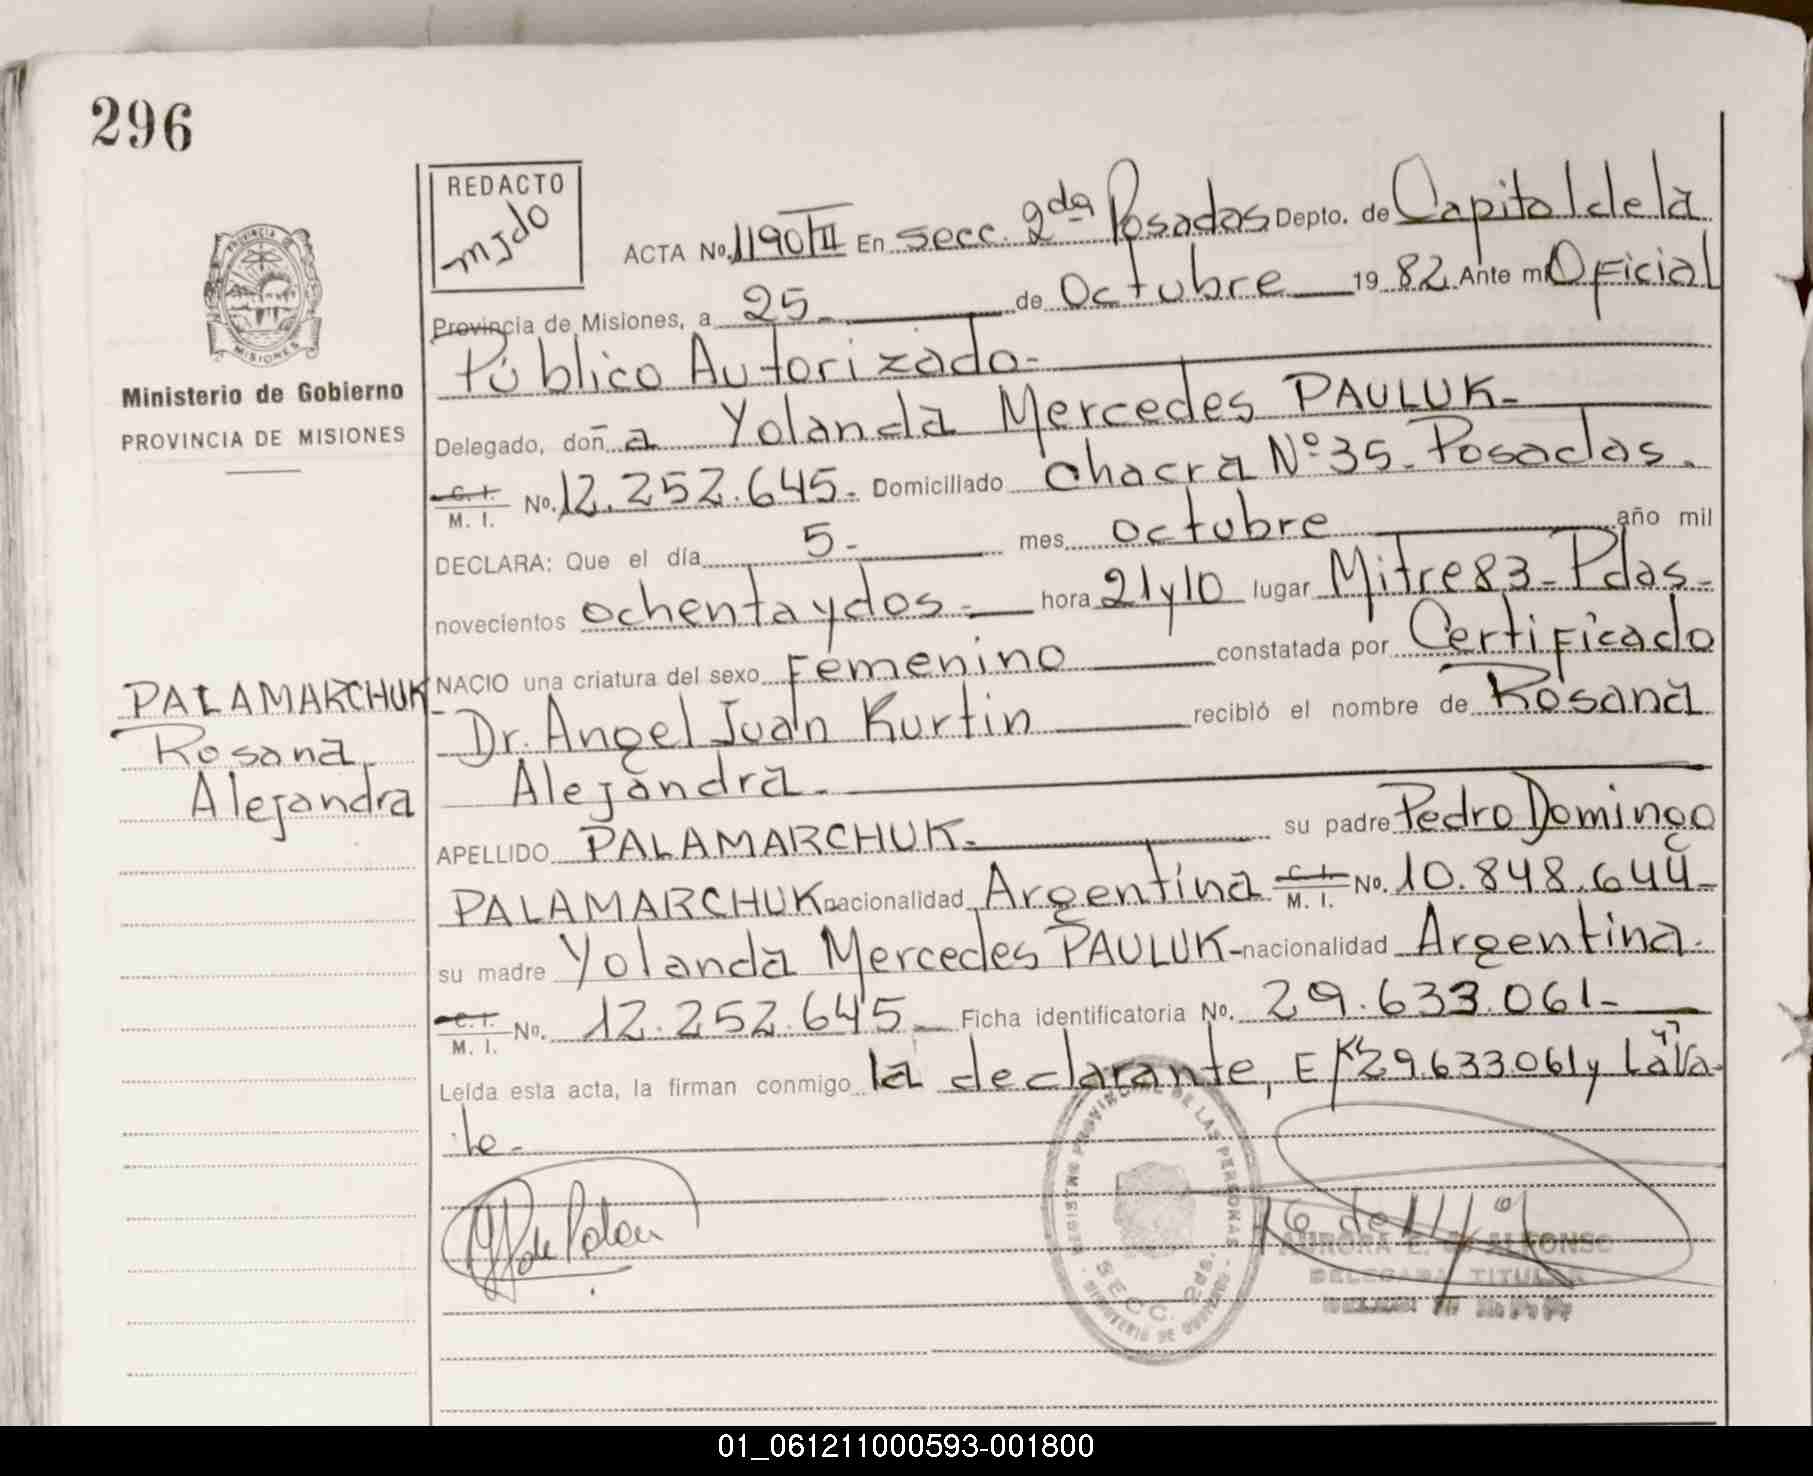 296
REDACTO
mjdo
ACTA No. 1190/III En secc. 2da Posadas Depto. de Capital de la
Provincia de Misiones, a 25 - de Octubre 19 82 Ante mi Oficial
Público Autorizado -
Delegado, doña Yolanda Mercedes PAULUK -
C. I. / M. I. No. 12.252.645 - Domiciliado Chacra Nº 35 - Posadas.
DECLARA: Que el día 5 - mes octubre año mil
novecientos ochenta y dos - hora 21 y 10 lugar Mitre 83 - Pdas -
NACIO una criatura del sexo Femenino constatada por Certificado
Dr. Angel Juan Kurtin recibió el nombre de Rosana
Alejandra -
APELLIDO PALAMARCHUK - su padre Pedro Domingo
PALAMARCHUK nacionalidad Argentina C. I. / M. I. No. 10.848.644 -
su madre Yolanda Mercedes PAULUK - nacionalidad Argentina -
C. I. / M. I. No. 12.252.645 - Ficha identificatoria No. 29.633.061 -
Leída esta acta, la firman conmigo la declarante, E/ 29.633.061 y La Va-
le -
PROVINCIA DE
MISIONES
Ministerio de Gobierno
PROVINCIA DE MISIONES
PALAMARCHUK -
Rosana
Alejandra
REGISTRO PROVINCIAL DE LAS PERSONAS
SECC. 2da.
MINISTERIO DE GOBIERNO
AURORA E. de ALFONSO
DELEGADA TITULAR
01_061211000593-001800